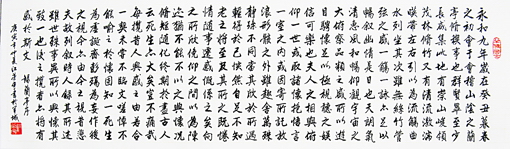 永和九年歲在癸丑暮春
之初會于會稽山陰之蘭
亭脩禊事也群賢畢至少
長咸集此地有崇山峻領
茂林脩竹又有清流激湍
映帶左右引以為流觴曲
水列坐其次雖無絲竹管
弦之盛一觴一詠亦足以
暢叙幽情是日也天朗氣
清惠風和暢仰觀宇宙之
大俯察品類之盛所以遊
目騁懷足以極視聽之娛
信可樂也夫人之相與俯
仰一世或取諸懷抱悟言
一室之內或因寄所託放
浪形骸之外雖趣舍萬殊
靜躁不同當其欣於所遇
輒得於己怏然自足不知
老之將至及其所之既惓
情隨事遷感慨係之矣向
之所欣俛仰之間以為陳
迹猶不能不以之興懷況
脩短隨化終期於盡古人
云死生亦大矣豈不痛哉
每攬昔人興感之由若合
一契未嘗不臨文嗟悼不
能喻之於懷固知一死生
為虛誕齊彭殤為妄作後
之視今亦由今之視昔悲
夫故列敘時人錄其所述
雖世殊事異所以興懷其
致一也後之攬者亦將有
感於斯文